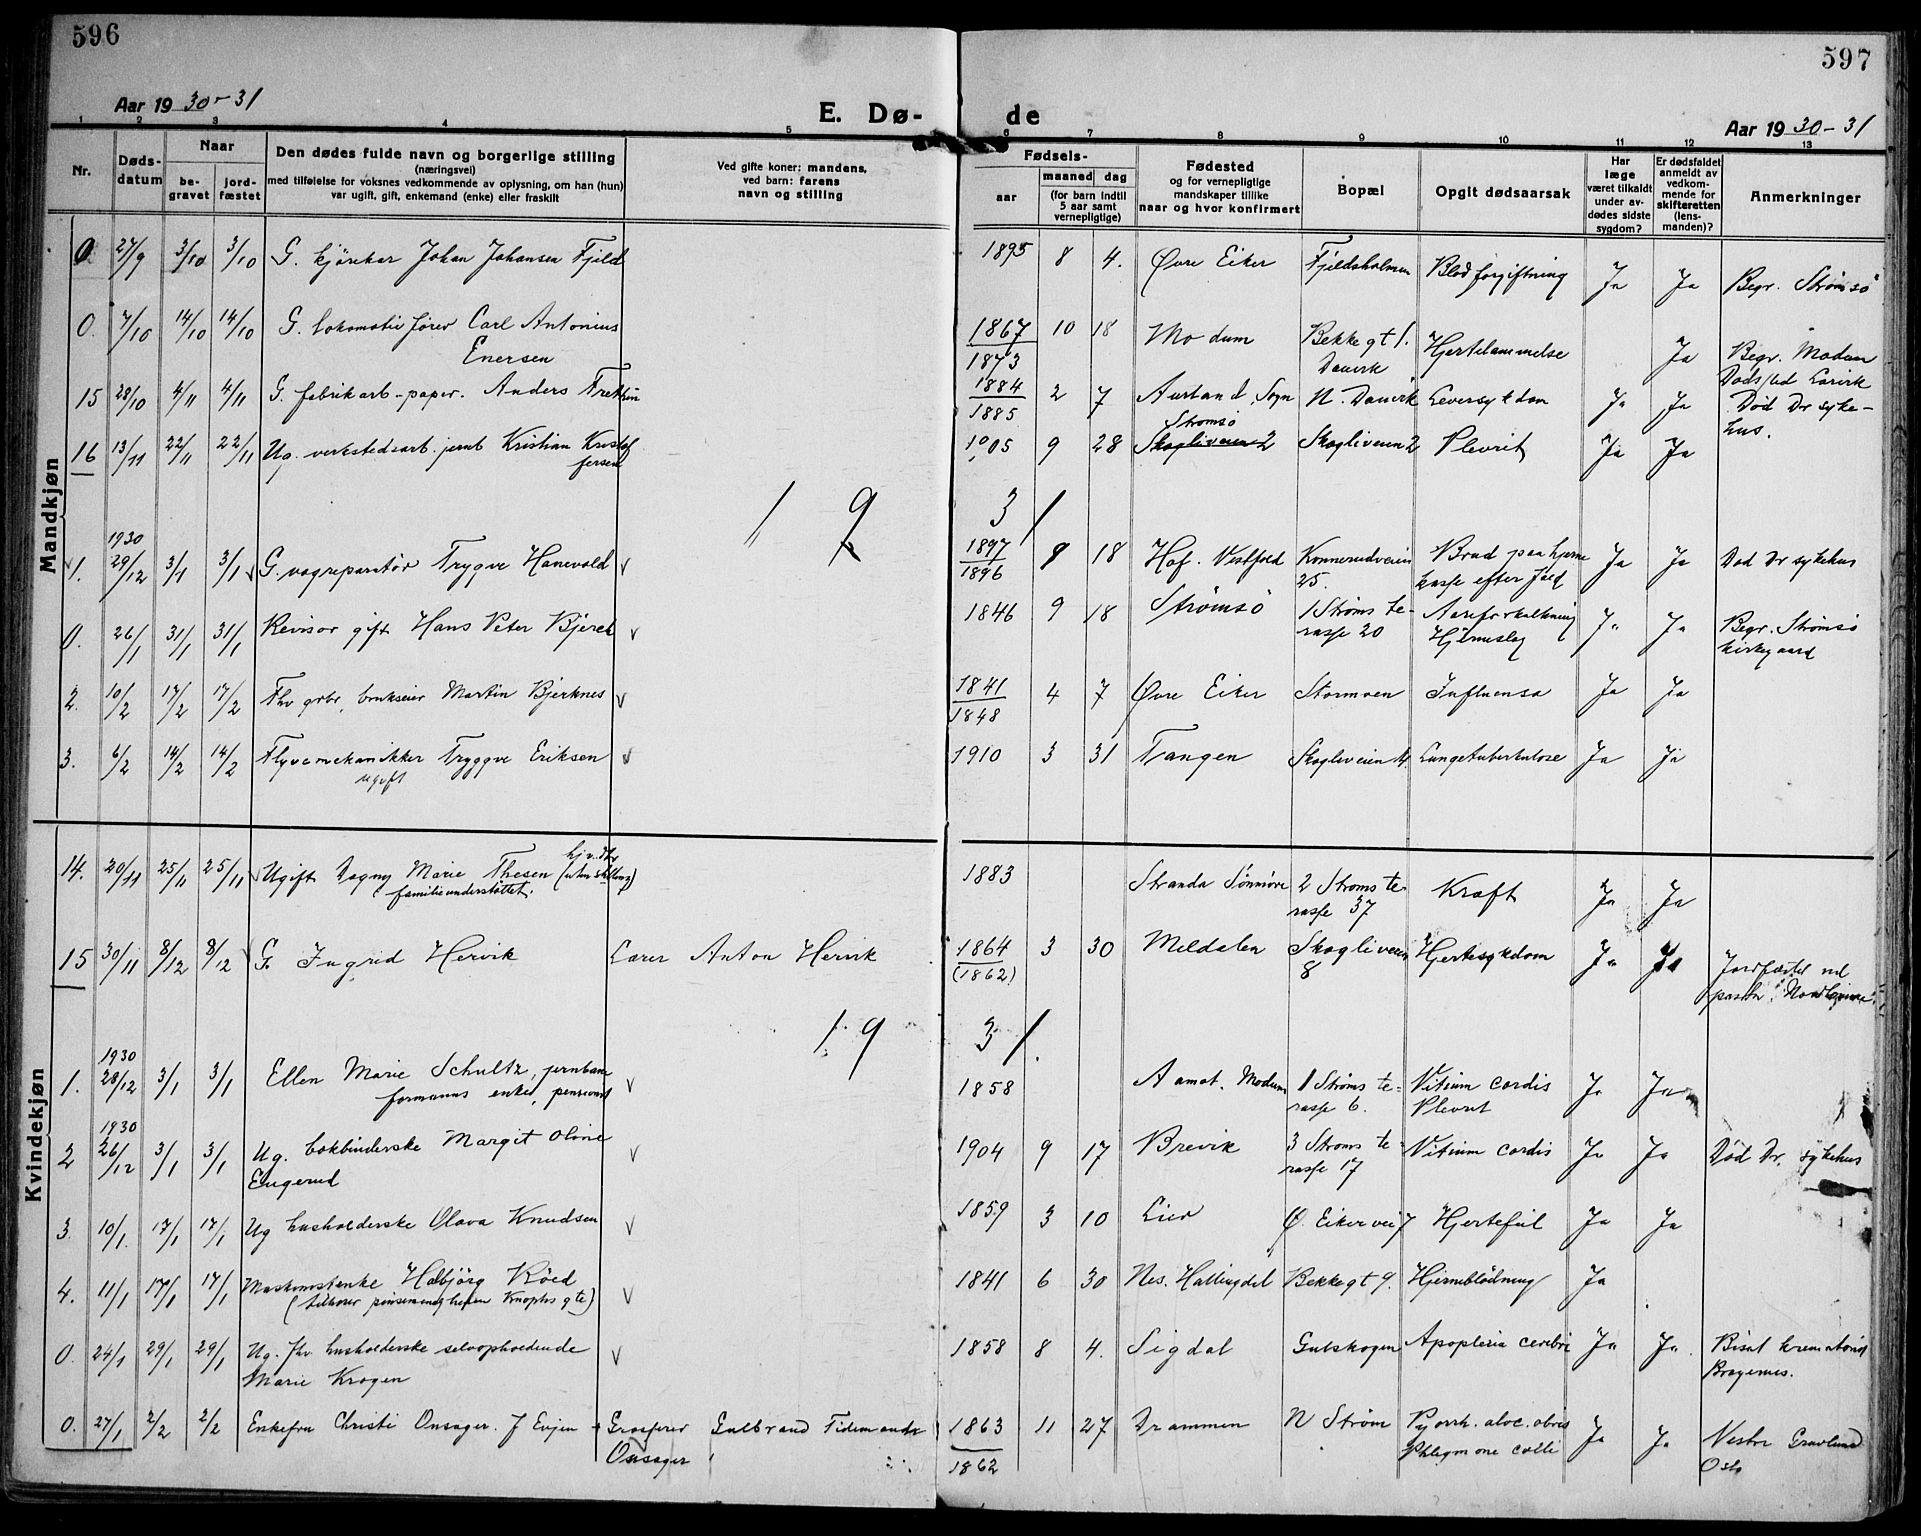 596
597
Aar 19 30-31
E. Dø-
de
Aar 19 30-31
1 2 3 4 5 6 7 8 9 10 11 12 13
Nr.
Døds-
datum
Naar
be-
gravet
jord-
fæstet
Den dødes fulde navn og borgerlige stilling
(næringsvei)
med tilføielse for voksnes vedkommende av oplysning, om han (hun)
var ugift, gift, enkemand (enke) eller fraskilt
Ved gifte koner: mandens,
ved barn: farens
navn og stilling
Fødsels-
aar
maaned dag
(for barn indtil
5 aar samt
vernepligtige)
Fødested
og for vernepligtige
mandskaper tillike
naar og hvor konfirmert
Bopæl
Opgit dødsaarsak
Har
læge
været tilkaldt
under av-
dødes sidste
sygdom?
Er dødsfaldet
anmeldt av
vedkom-
mende for
skifteretten
(lens-
manden)?
Anmerkninger
Mandkjøn
0 27/9 3/10 3/10 G. kjørekar Johan Johansen Fjeld 1895 8 4. Øvre Eiker Fjeldsholmen Blodforgiftning Ja Ja Begr. Strømsø
0. 7/10 14/10 14/10 G. lokomotivfører Carl Antonius 1867 10 18 Modum Bekkegt 1. Hjertelammelse Ja Begr. Modum
Enersen 1873 Danvik Dødsted
15 28/10 4/11 4/11 G. fabrikarb-papir. Anders 1884 2 7 Aurland, Sogn N. Danvik Leversykdom Ja Ja Død Dr syke-
1885 hus.
16 13/11 22/11 22/11 Ug. verkstedsarb. jernb Kristian Kristof 1905 9 28 Strømsø Skogliveien 2 Skogliveien 2 Plevrit Ja Ja
fersen
1 9 3 1
1930
1. 29/12 3/1 3/1 G. vognreparatør Trygve Hanevold 1897 8 18 Hof. Vestfold Konnerudveien Brud paa hjerne Ja Ja Død Dr sykehus
1896 25. kasse efter fald
0. 26/1 31/1 31/1 Revisor gift Hans Peter Bjerch 1846 9 18 Strømsø 1 Strøms te- Aareforkalkning Ja Ja Begr. Strømsø
rasse 20 Hjerneslag kirkegaard
2. 10/2 17/2 17/2 Fhv grbr, brukseier Martin Bjerknes 1841 4 7 Øvre Eiker Stormoen Influensa Ja Ja
1848
3. 6/2 14/2 14/2 Flyvemekanikker Tryggve Eriksen 1910 3 31 Tangen Skogliveien Lungetuberkulose Ja Ja
ugift
Kvindekjøn
14. 20/11 25/11 25/11 Ugift Dagny Marie Thesen (uten stilling) 1883 Stranda Sønmøre 2 Strøms te- Kræft Ja Ja
familieunderstøttet. rasse 37
15 30/11 8/12 8/12 G. Ingrid Hervik Lærer Anton Hervik 1864 3 30 Meldalen Skogliveien Hjertesykdom Ja Ja Jordfæstet ved
(1862) 8 pastor
1. 9 3 1.
1930
1. 28/12 3/1 3/1 Ellen Marie Schultz, jernbane 1858 Aamot. Modum 1 Strøms te- Vitium cordis Ja Ja
formanns enke, pensionist rasse 6. Plevrit
1930
2 26/12 3/1 3/1 Ug. bokbinderske Margit Oline 1904 9 17 Brevik 3 Strøms te- Vitium cordis Ja Ja Død Dr. sykehus
Engerud rasse 17
3. 10/1. 17/1 17/1 Ug husholderske Olava Knudsen 1859 3 10 Lier Ø. Eikervei 7 Hjertefeil Ja Ja
4. 11/1 17/1 17/1 Halbjörg Röed 1841 6 30 Nes. Hallingdal Bekkegt 9. Hjerneblödning Ja
(tilhører pinsemenigheten Knophs gte)
0. 24/1 29/1 29/1 Ug. fhv. husholderske selvopholdende 1858 8 4. Sigdal Gulskogen Apoplexia cerebri Ja Ja. Bisat krematoriet
Marie Krogen Bragernes.
0. 27/1 2/2 2/2 Enkefru Christi Onsager. f Evjen Grosserer Gulbrand Tidemands 1863 11 27 Drammen N Strøm Pyorrh. alve. obris Ja Ja Vestre Gravlund
Onsager 1862 Phlegmone colli Oslo